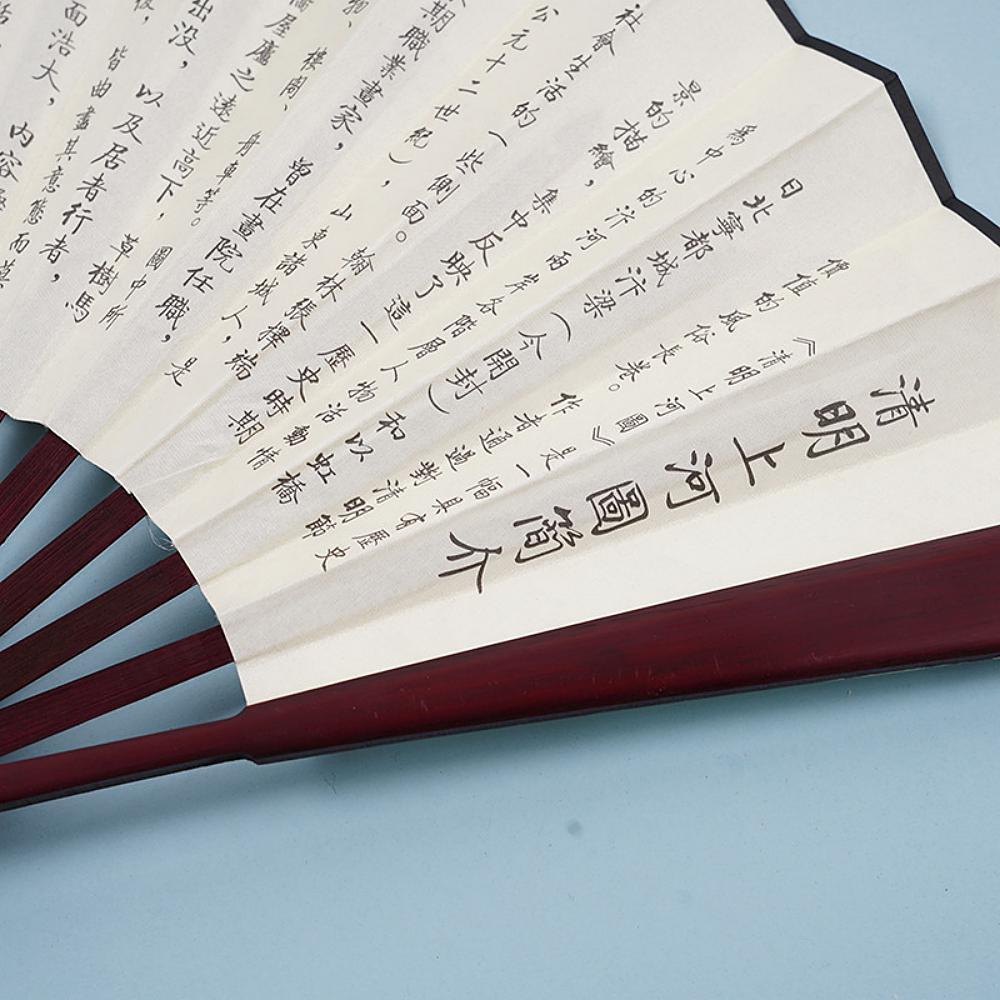 清明上河圖簡介
《清明上河圖》是一幅具有歷史
價值的風俗長卷。作者通過對清明節
日北寧都城汴梁（今開封）和以虹橋
爲中心的汴河兩岸各階層人物活動情
景的描繪，集中反映了這一歷史時期
社會生活的（些側面。翰林張擇端
公元十二世紀），山東諸城人，是
期職業畫家，曾在畫院任職，
樓閣、舟車等。圖中所
橋屋廬之遠近高下，草樹馬
出没，以及居者行者，
皆曲盡其意態而真
面浩大，内容